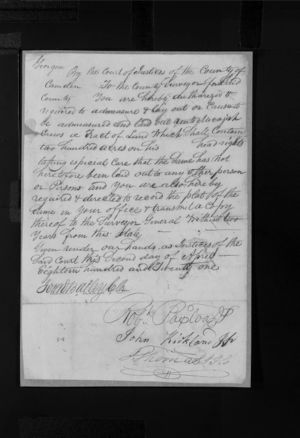 Georgia By the Court of Justices of the County of
Camden To the County Surveyor of said
County You are hereby authorized &
required to admeasure & lay out or Cause
to be admeasured and laid out unto
a Tract of Land which shall Contain
two hundred acres on his head rights
taking especial Care that the same has not
heretofore been laid out to any other person
or Persons and you are also hereby
required & directed to record the plat of the
same in your office & transmit a Copy
thereof to the Surveyor General within two
Years from this date
Given under our hands as Justices of the
said Court this Second day of April
Eighteen hundred and
John Kirkland